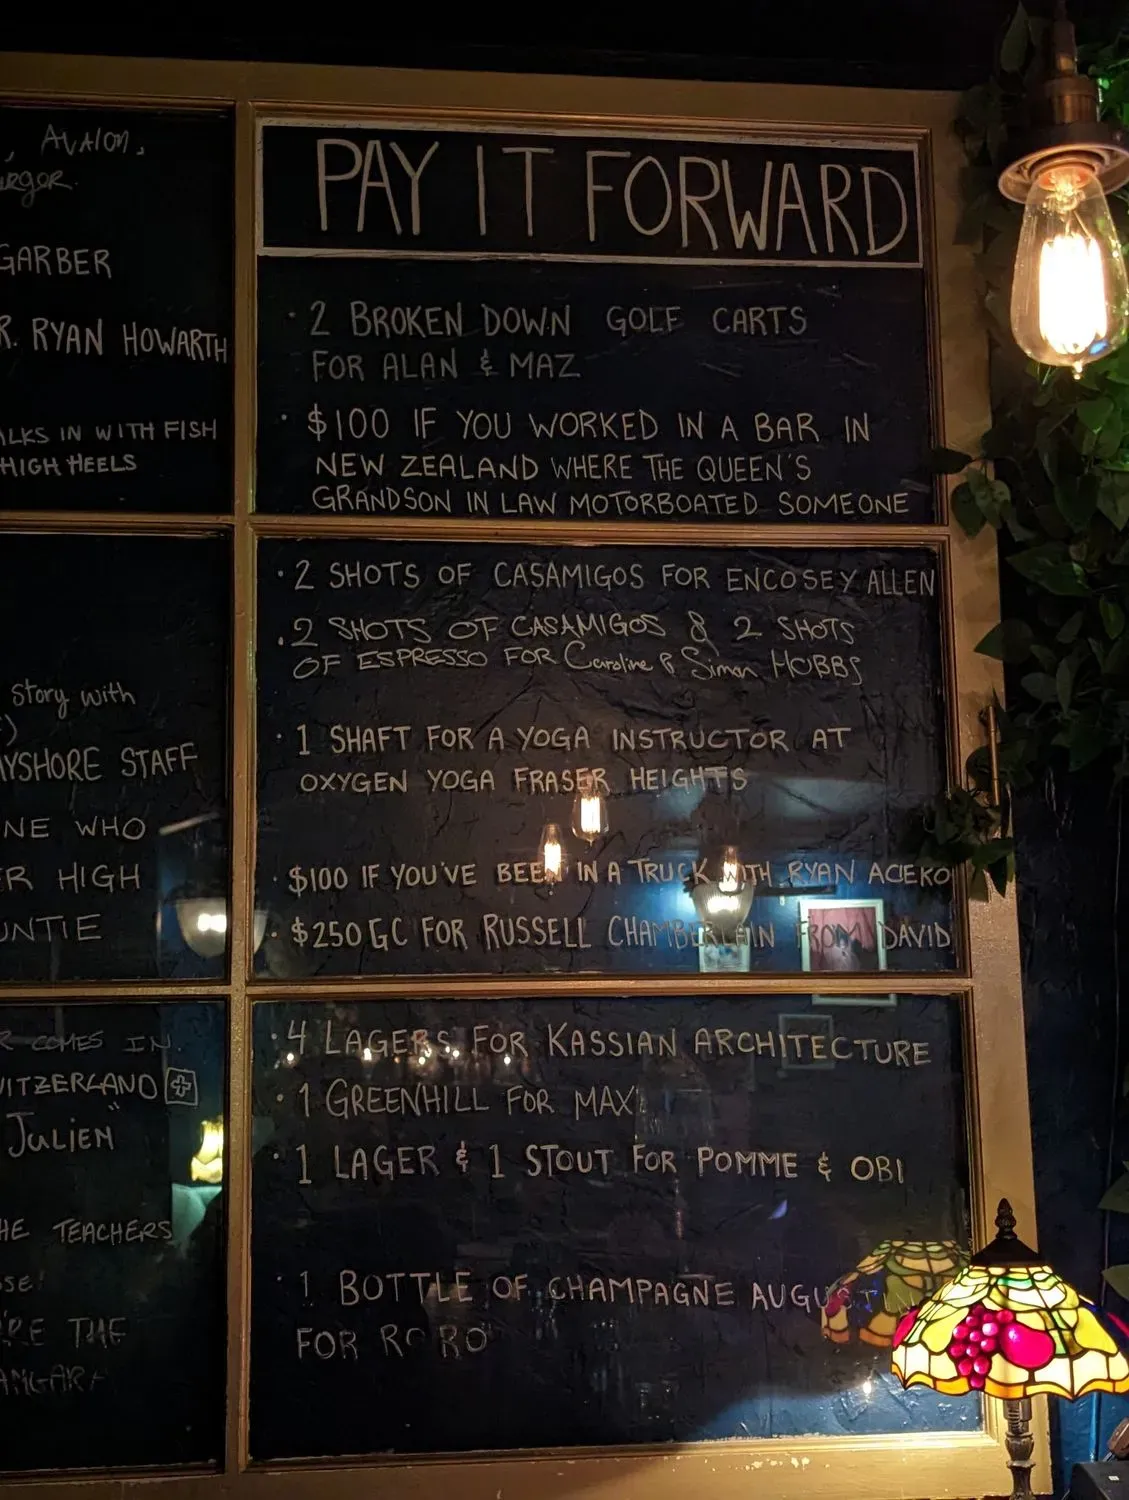 AVALON,
GARBER
R. RYAN HOWARTH
ALKS IN WITH FISH
HIGH HEELS
story with
AYSHORE STAFF
NE WHO
R HIGH
UNTIE
R COMES IN
WITZERLAND
JULIEN"
HE TEACHERS
RE THE
PAY IT FORWARD
• 2 BROKEN DOWN GOLF CARTS
FOR ALAN & MAZ
• $100 IF YOU WORKED IN A BAR IN
NEW ZEALAND WHERE THE QUEEN'S
GRANDSON IN LAW MOTORBOATED SOMEONE
• 2 SHOTS OF CASAMIGOS FOR ENCOSEY ALLEN
• 2 SHOTS OF CASAMIGOS & 2 SHOTS
OF ESPRESSO FOR Caroline & Simon HOBBS
• 1 SHAFT FOR A YOGA INSTRUCTOR AT
OXYGEN YOGA FRASER HEIGHTS
• $100 IF YOU'VE BEEN IN A TRUCK WITH RYAN ACIEKO
• $250 GC FOR RUSSELL CHAMBERLAIN FROM DAVID
• 4 LAGERS FOR KASSIAN ARCHITECTURE
• 1 GREENHILL FOR MAX
• 1 LAGER & 1 STOUT FOR POMME & OBI
• 1 BOTTLE OF CHAMPAGNE AUGUSTIN
FOR RORO